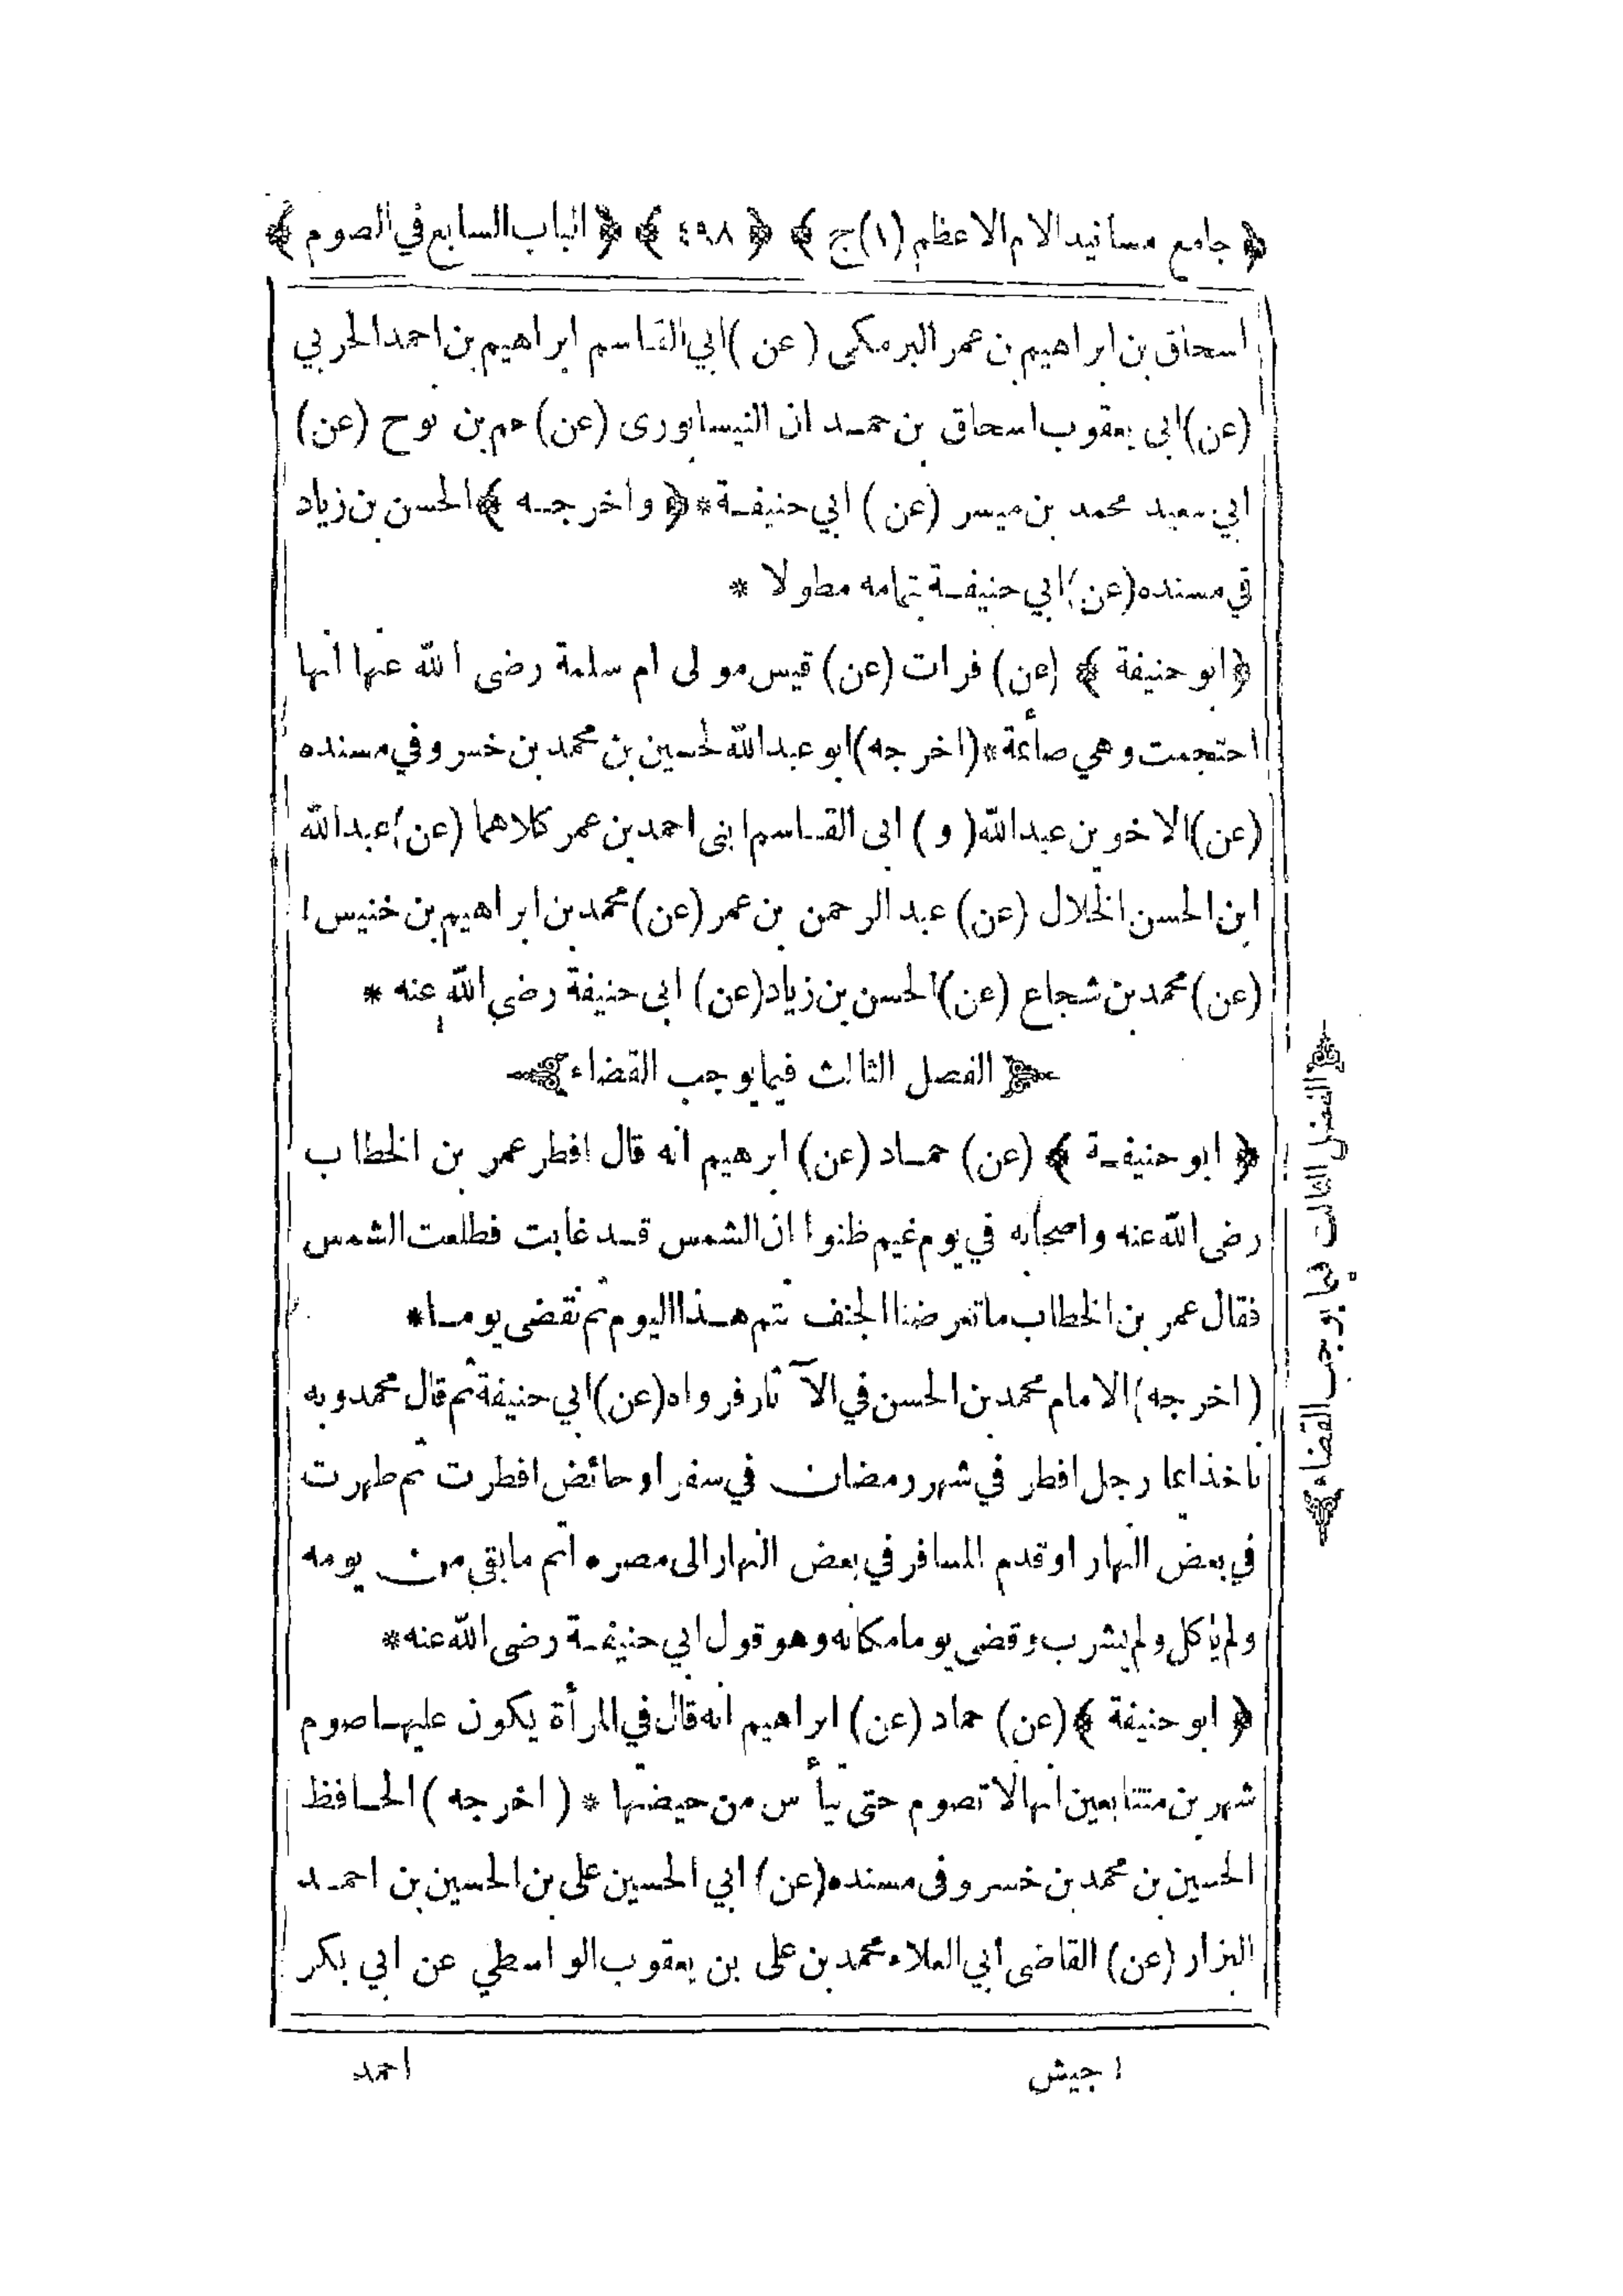 ﴿ جامع مسانيد الام الاعظم (١) ج ﴾ ﴿ ٤٩٨ ﴾ ﴿ الباب السابع في الصوم ﴾
اسحاق بن ابراهيم بن عمر البرمكى ( عن ) ابي القاسم ابراهيم بن احمد الحربي
(عن) ابى يعقوب اسحاق بن حمدان النيسابورى (عن) حم بن نوح (عن)
ابي سعيد محمد بن ميسر (عن) ابي حنيفة * ﴿ واخرجه ﴾ الحسن بن زياد
في مسنده (عن) ابي حنيفة بتمامه مطولا *
﴿ ابو حنيفة ﴾ (عن) فرات (عن) قيس مولى ام سلمة رضى الله عنها انها
احتجمت وهي صائمة * (اخرجه) ابو عبد الله لحسين بن محمد بن خسرو في مسنده
(عن) الاخوين عبد الله ( و ) ابى القاسم ابنى احمد بن عمر كلاهما (عن) عبد الله
ابن الحسن الخلال (عن) عبد الرحمن بن عمر (عن) محمد بن ابراهيم بن خنيس ١
(عن) محمد بن شجاع (عن) الحسن بن زياد (عن) ابى حنيفة رضي الله عنه *
الفصل الثالث فيما يوجب القضاء
﴿ ابو حنيفة ﴾ (عن) حماد (عن) ابرهيم انه قال افطر عمر بن الخطاب
رضى الله عنه واصحابه في يوم غيم ظنوا ان الشمس قد غابت فطلعت الشمس
فقال عمر بن الخطاب ما تعرضنا الجنف نتم هذا اليوم ثم نقضى يوما *
(اخرجه) الامام محمد بن الحسن في الآثار فرواه (عن) ابي حنيفة ثم قال محمد وبه
نأخذ ايما رجل افطر في شهر رمضان في سفر او حائض افطرت ثم طهرت
في بعض النهار او قدم المسافر في بعض النهار الى مصره اتم ما بقي من يومه
ولم يأكل ولم يشرب وقضى يوما مكانه وهو قول ابي حنيفة رضى الله عنه *
﴿ ابو حنيفة ﴾ (عن) حماد (عن) ابراهيم انه قال في المرأة يكون عليها صوم
شهرين متتابعين انها لا تصوم حتى تيأس من حيضتها * ( اخرجه ) الحافظ
الحسين بن محمد بن خسرو فى مسنده (عن) ابي الحسين على بن الحسين بن احمد
البزار (عن) القاضى أبي العلاء محمد بن على بن يعقوب الواسطي عن ابي بكر
١ جيش
احمد
الفصل الثالث فيما يوجب القضاء